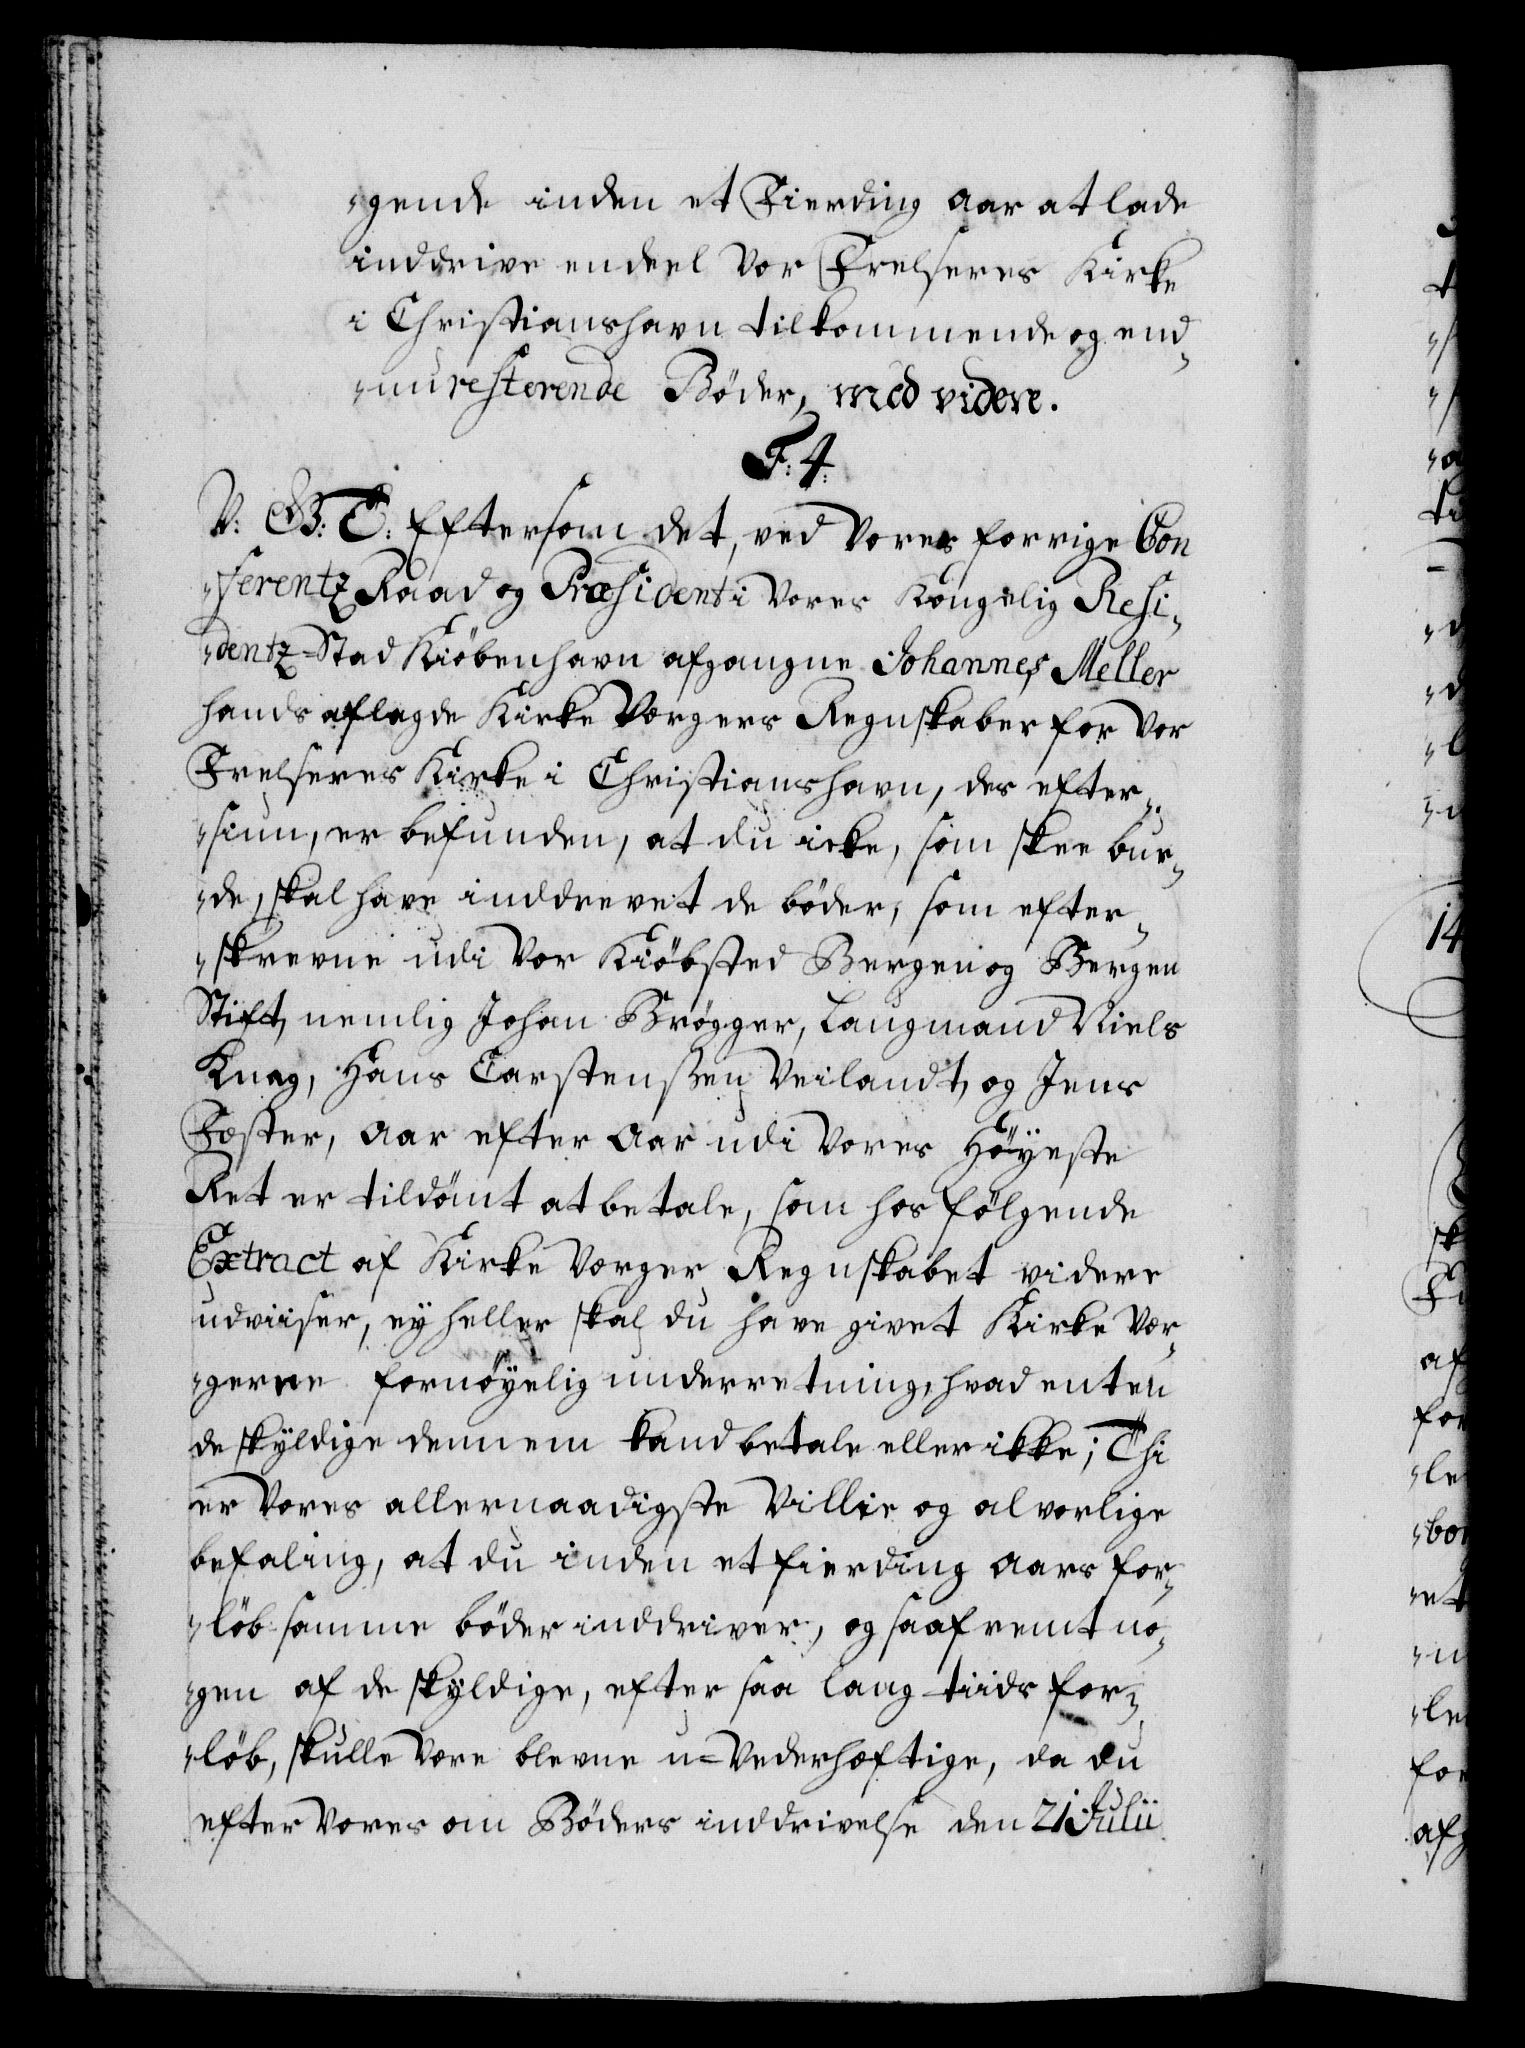 -gende inden et Fierding Aar at lade
inddrive endeel Vor Frelseres Kirke
i Christianshavn tilkommende og end-
-nu resterende Bøder, med videre.
F. 4.
V: G. T: Eftersom det, ved Vores forrige Con
-ferentz Raad og Præsident i Vores Kongelig Resi-
-dentz-Stad Kiöbenhavn afgangne Johannes Meller
hands aflagde Kirke Værgers Regnskaber for Vor
Frelseres Kirke i Christianshavn, des efter-
-siun, er befunden, at du icke, som skee bur-
-de, skal have inddrevet de bøder, som efter-
-skrevne udi Vor Kiöbsted Bergen og Bergen
Stift, nemlig Johan Brøgger, Laugmand Niels
Knag, Hans Carstenßen Veilandt, og Jens
Fæster, Aar efter Aar udi Vores Höyeste
Ret er tildömt at betale, som hos fölgende
Extract af Kirke Værger Regnskabet videre
udviiser, ey heller skal du have givet Kirke Vær-
-gerne fornöyelig underretning, hvad enten
de skyldige dennem kand betale eller ikke; Thi
er Vores allernaadigste Villie og alvorlige
befaling, at du inden et fierding Aars for-
-löb samme bøder inddriver, og saafremt no-
-gen af de skyldige, efter saa lang tiids for-
-löb, skulle være blevne u-Vederhæftige, da du
efter Vores om Bøders inddrivelse den 21 Julii